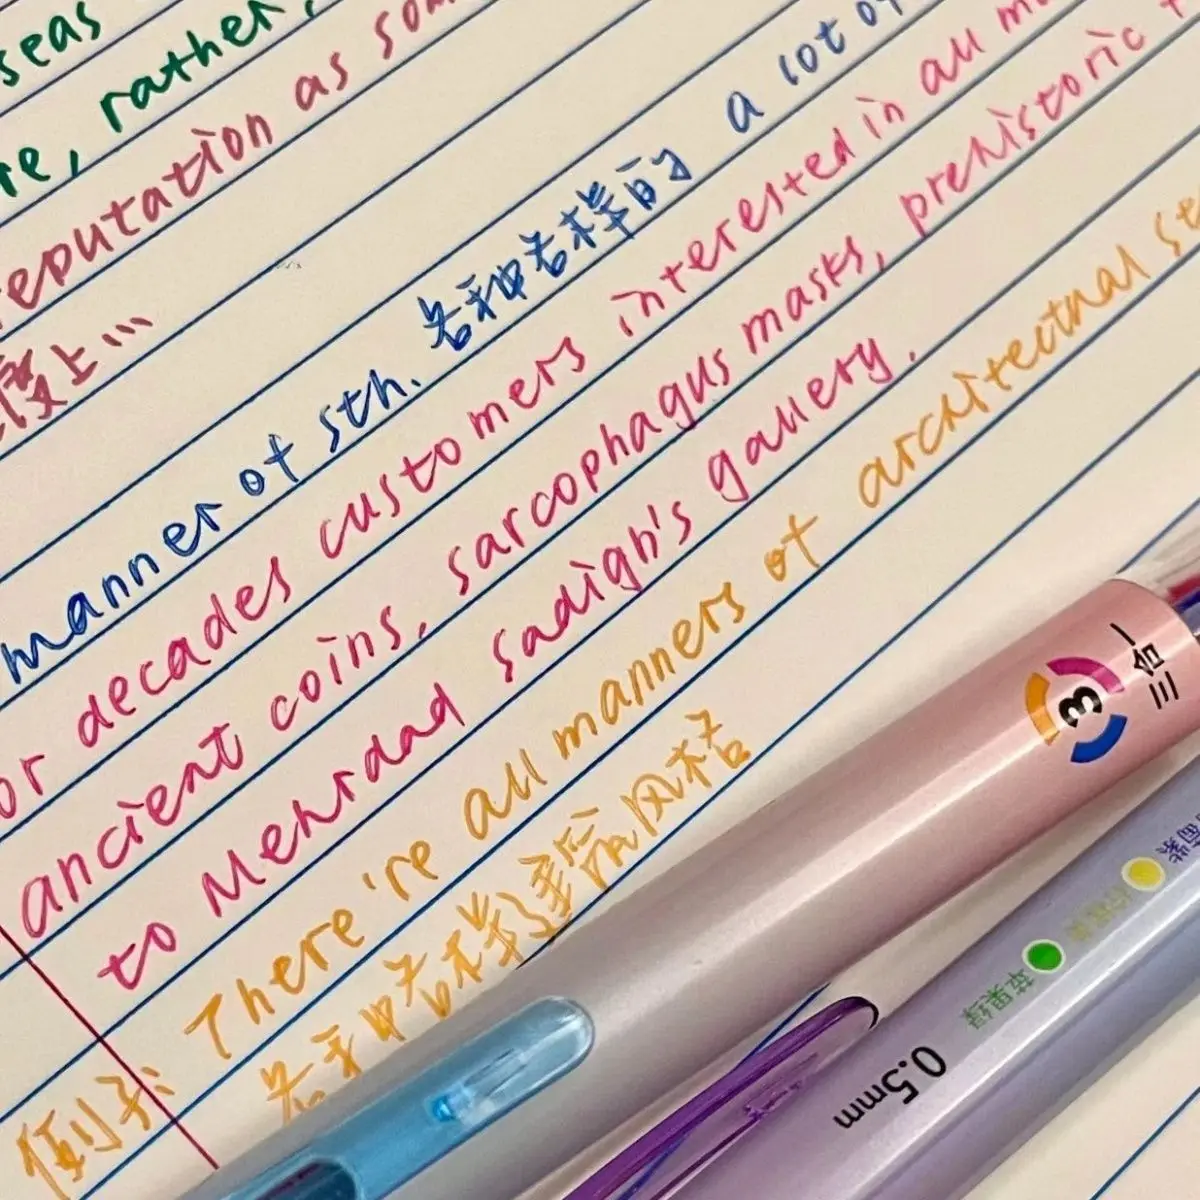 seas
re, rather,
reputation as som
度上…
manner of sth. 各种各样的 a lot of
or decades customers interested in all m
ancient coins, sarcophagus masks, prehistoric
to Mehrdad sadigh's gallery.
例子 There're all manners of architectual st
各种各样建筑风格
3 三合一
0.5mm
苹果绿